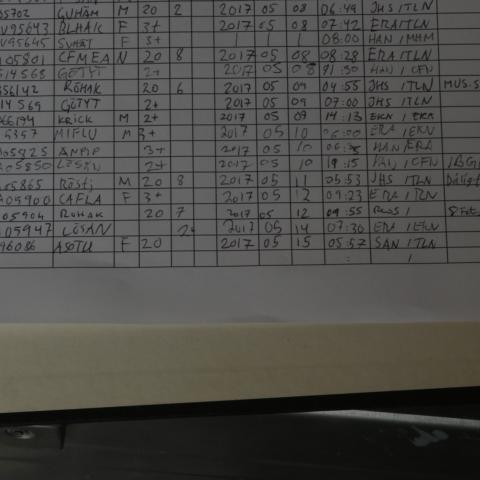 65702 GUHAM M 20 2 2017 05 08 06:49 JHS ITLN
V95643 BLHAK F 3+ 2017 05 08 07:42 ERA ITLN
V95645 F 3+ 08:00 HAN
05801 CFMEA N 20 8 2017 05 08 08:28 ERA ITLN
514568 GOTYT 2+ 2017 05 08 HAN / CFN
56142 ROHAK 20 6 2017 05 09 04:55 JHS ITLN MUS.S
14569 GOTYT 2+ 2017 05 09 07:00 JHS ITLN
66194 KRICK M 2+ 2017 05 09 14:13 EKN / EKN
6357 MIFLU M 3+ 2017 05 10 06:00 ERA / EKN
05825 3+ 2017 05 10 HAN ERA
05850 LOSAN 2+ 2017 05 10 19:15 / CFN
05865 ROSTJ M 20 8 2017 05 11 05:53 JHS ITLN
A05900 CAFLA F 3+ 2017 05 12 09:23 ERA ITLN
05904 ROHAK 20 7 2017 05 12 09:55
A05947 LOSAN 2+ 2017 05 14 07:30 ERA / EKN
96086 ASOTU F 20 2017 05 15 05:57 SAN ITLN